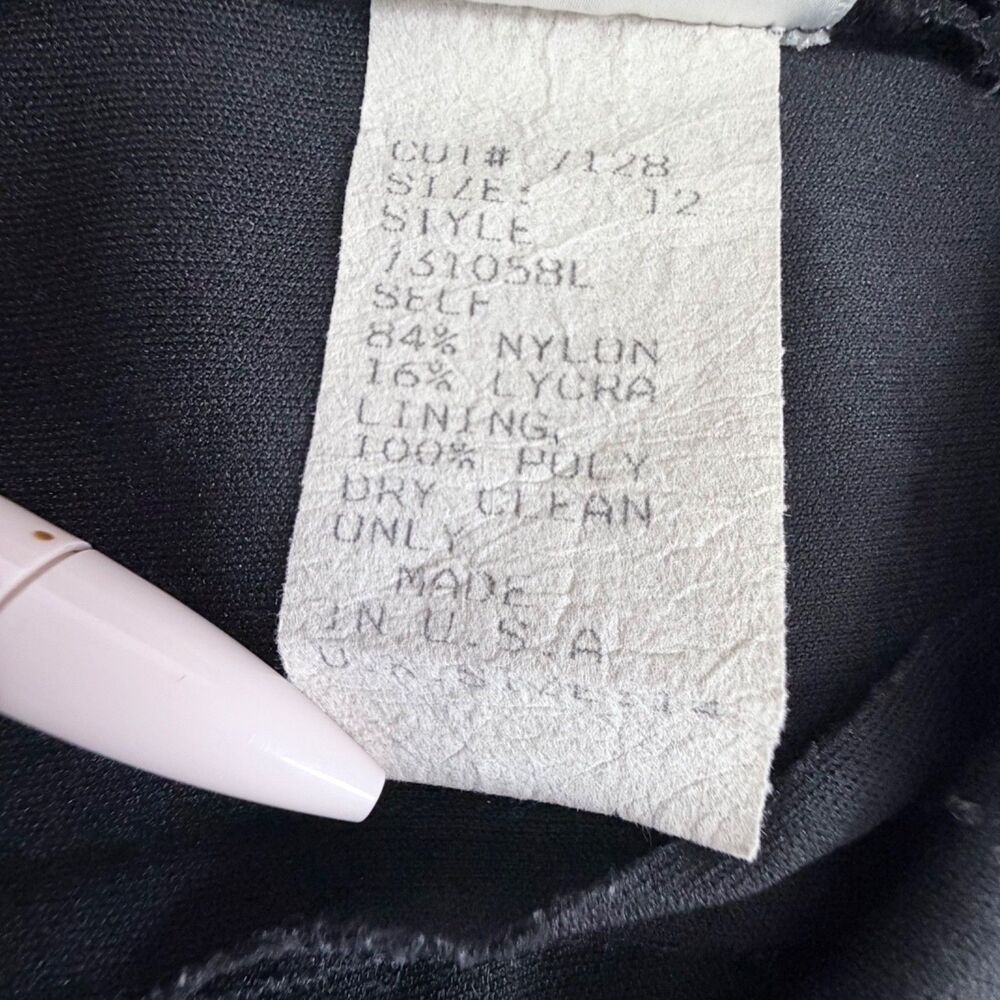 CUT# 7128
SIZE: 12
STYLE
731058L
SELF
84% NYLON
16% LYCRA
LINING,
100% POLY
DRY CLEAN
ONLY
MADE
IN U.S.A
U.K.SIZE:14